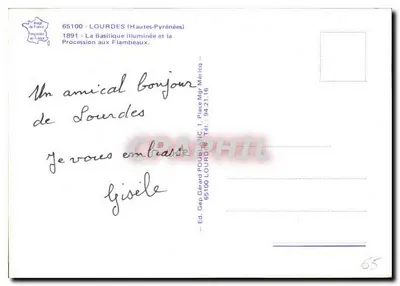 65100 - LOURDES (Hautes-Pyrénées)
1891 - La Basilique illuminée et la
Procession aux Flambeaux.
Un amical bonjour
de Lourdes
Je vous embrasse
Gisèle
— Ed. Gep Gérard POUX SNC, 1, Place Mgr Méricq —
65100 LOURDES Tél. 94.21.16
65